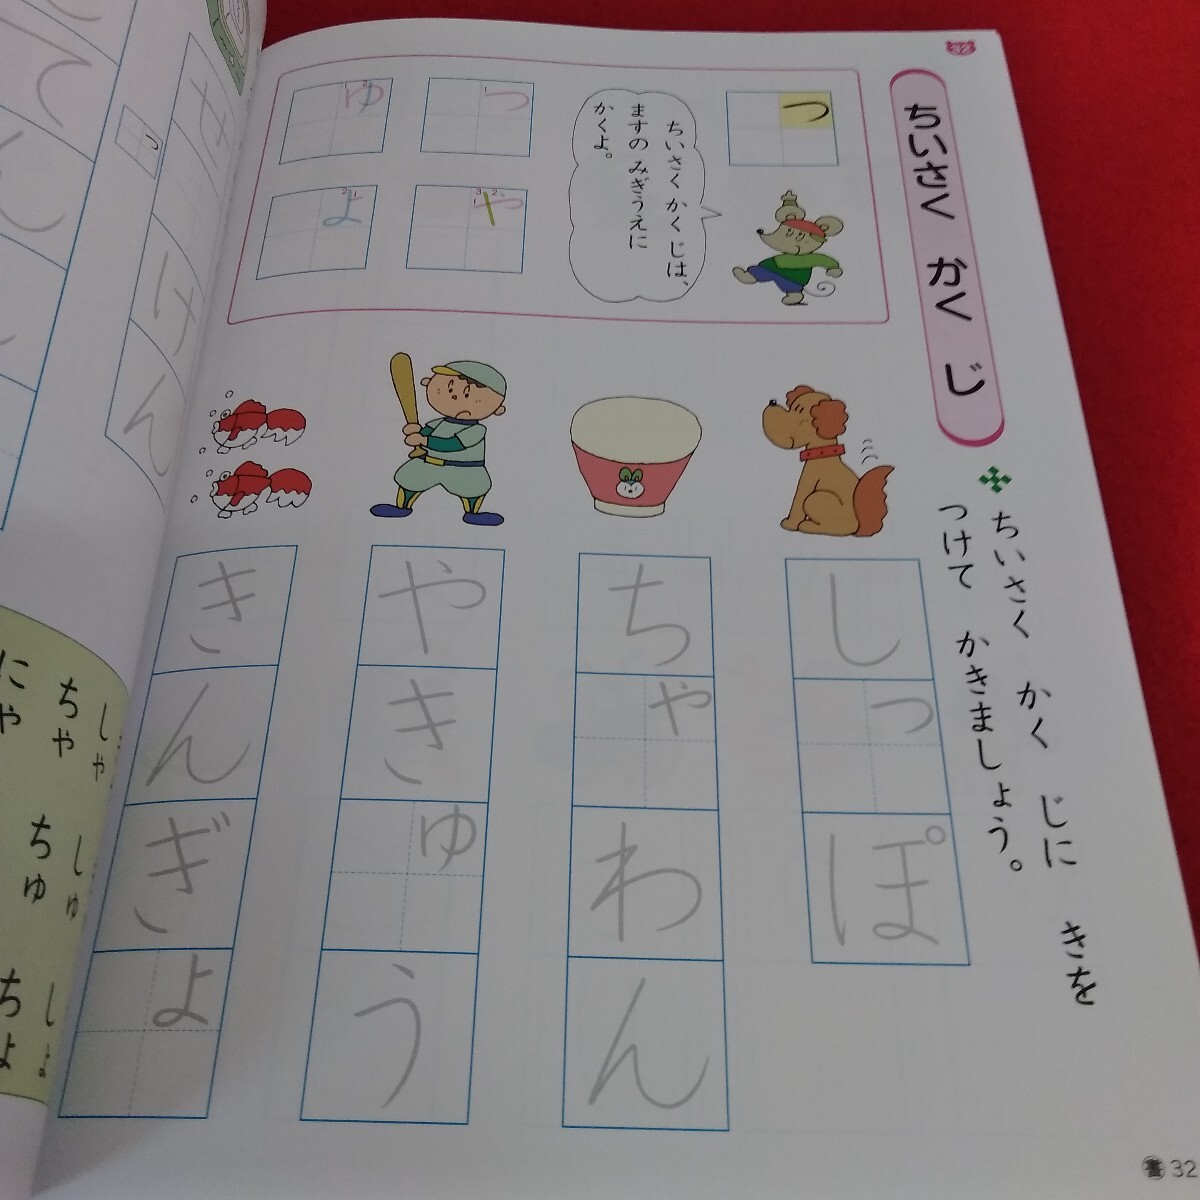 32
ちいさく かく じ
ちいさく かく じに きを
つけて かきましょう。
つ
ちいさく かく じは、
ますの みぎうえに
かくよ。
っ
ゃ
ゅ
ょ
しっぽ
ちゃわん
やきゅう
きんぎょ
けん
しゃ しゅ しょ
ちゃ ちゅ ちょ
にゃ
書 32